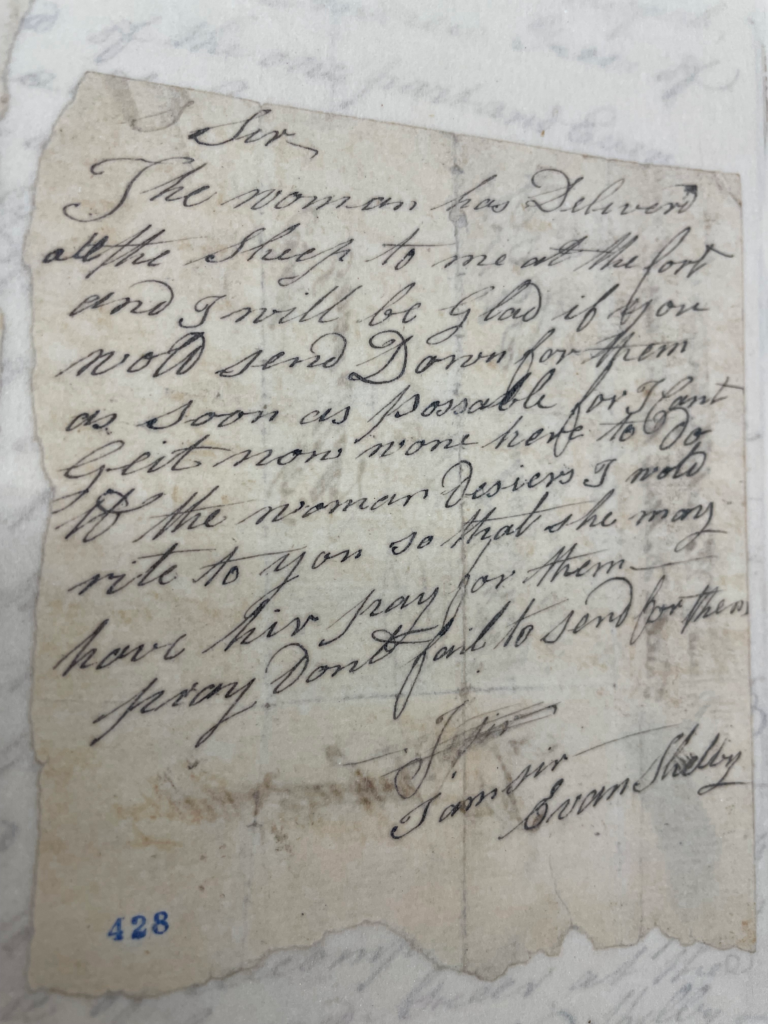 Sir
The woman has Deliverd
all the Sheep to me at the fort
and I will be Glad if you
wold send Down for them
as soon as possable for I Cant
Geit now wone here to Do
it the woman Desiers I wold
rite to you so that she may
have hir pay for them
pray Dont fail to send for them
I sir
I am sir
Evan Shelby
428